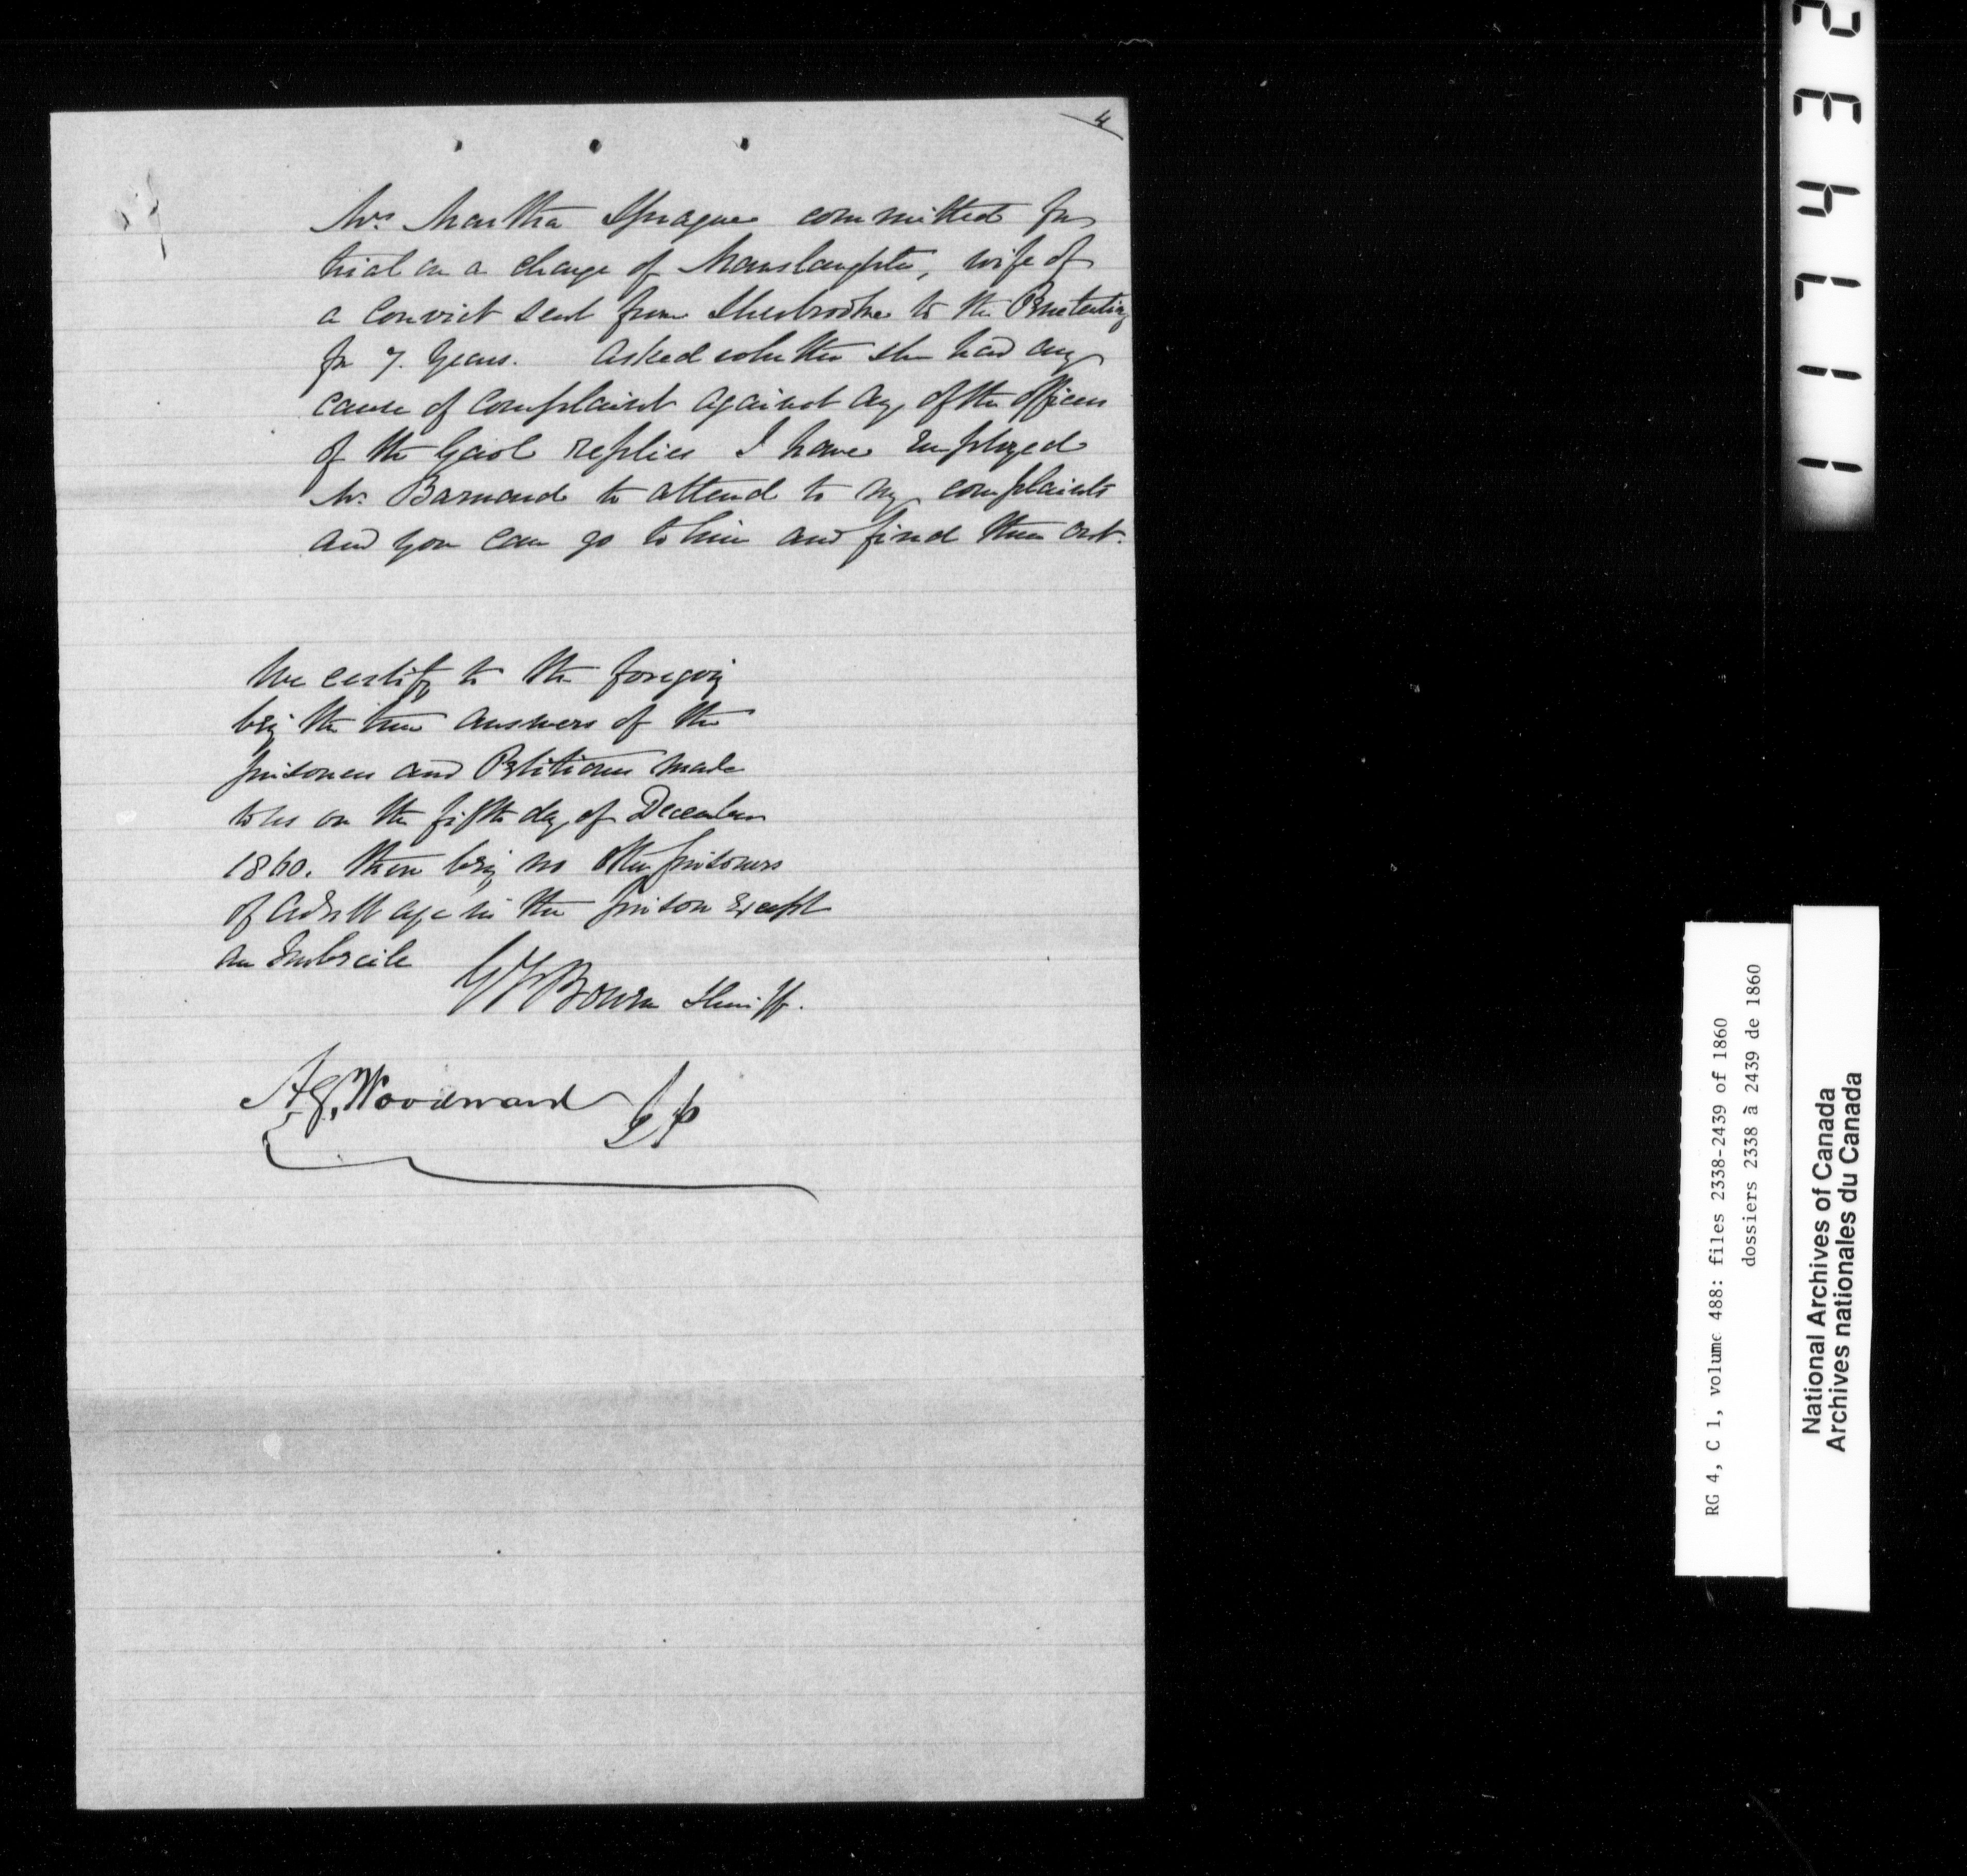 4
Mrs. Martha Sprague committed for
trial on a charge of Manslaughter, wife of
a Convict sent from Sherbrooke to the Penitentiary
for 7. Years. Asked whether she had any
cause of Complaint against any of the officers
of the Gaol replies I have Employed
Mr. Barnard to attend to my complaints
and you can go to him and find them out.
We certify to the foregoing
being the true answers of the
prisoners and Petitions made
to us on the fifth day of December
1860. there being no other prisoners
of adult age in the prison Except
an Imbecile
Bowen Sheriff.
A.G. Woodward J P
117432
RG 4, C 1, volume 488: files 2338-2439 of 1860
dossiers 2338 à 2439 de 1860
National Archives of Canada
Archives nationales du Canada